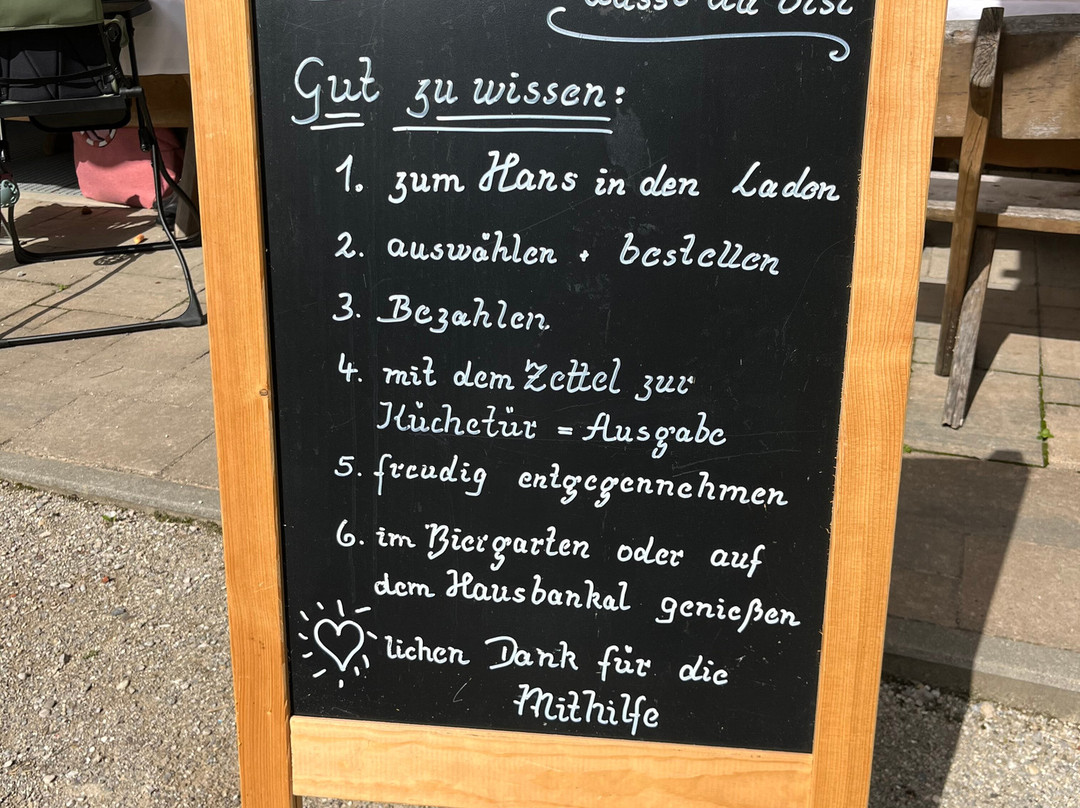 Gut zu wissen:
1. zum Hans in den Laden
2. auswählen + bestellen
3. Bezahlen.
4. mit dem Zettel zur
Küchetür = Ausgabe
5. freudig entgegennehmen
6. im Biergarten oder auf
dem Hausbankal genießen
lichen Dank für die
Mithilfe